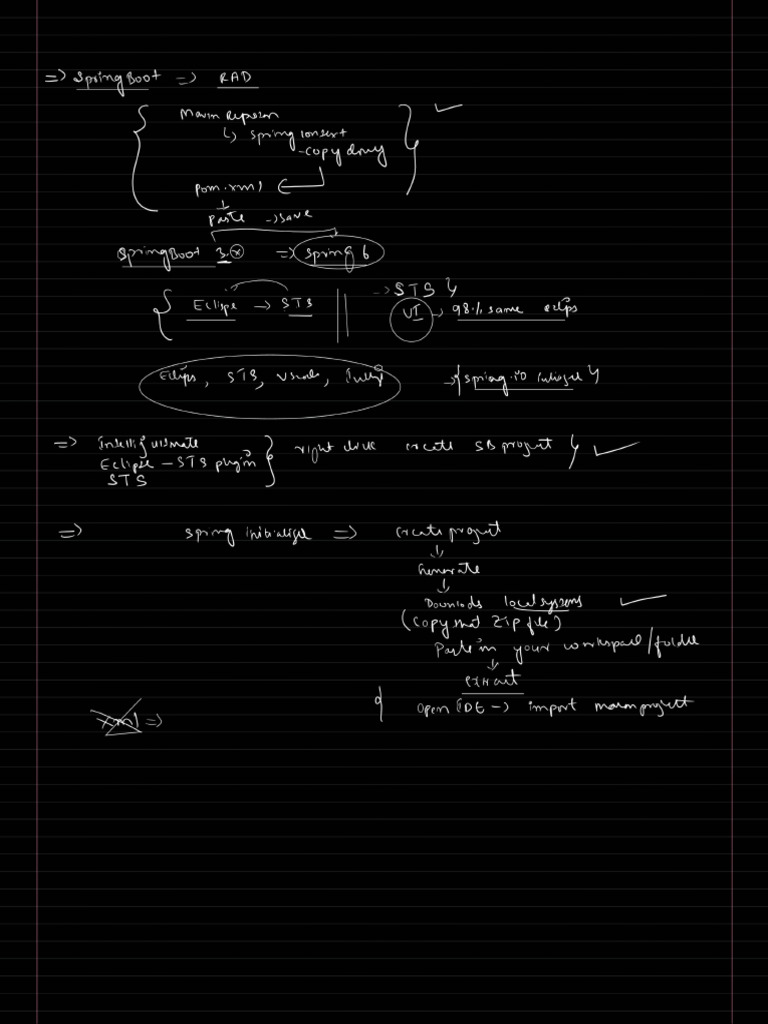 => SpringBoot => RAD
Maven Reposon
↳ Spring context
- copy dency
pom.xml ←
↓
paste → save
SpringBoot 3.x => Spring 6
{ Eclispe → STS || → STS
UI → 98% same eclips
Eclips, STS, vscode, → { spring.io
=> Intellij ultimate
Eclipse - STS plugin } right click create SB project
STS
=> Spring initializer => create project
↓
Generate
↓
Downloads local systems
(copy that zip file)
Paste in your workspace/folder
↓
extract
Open IDE → import maven project
xml =>